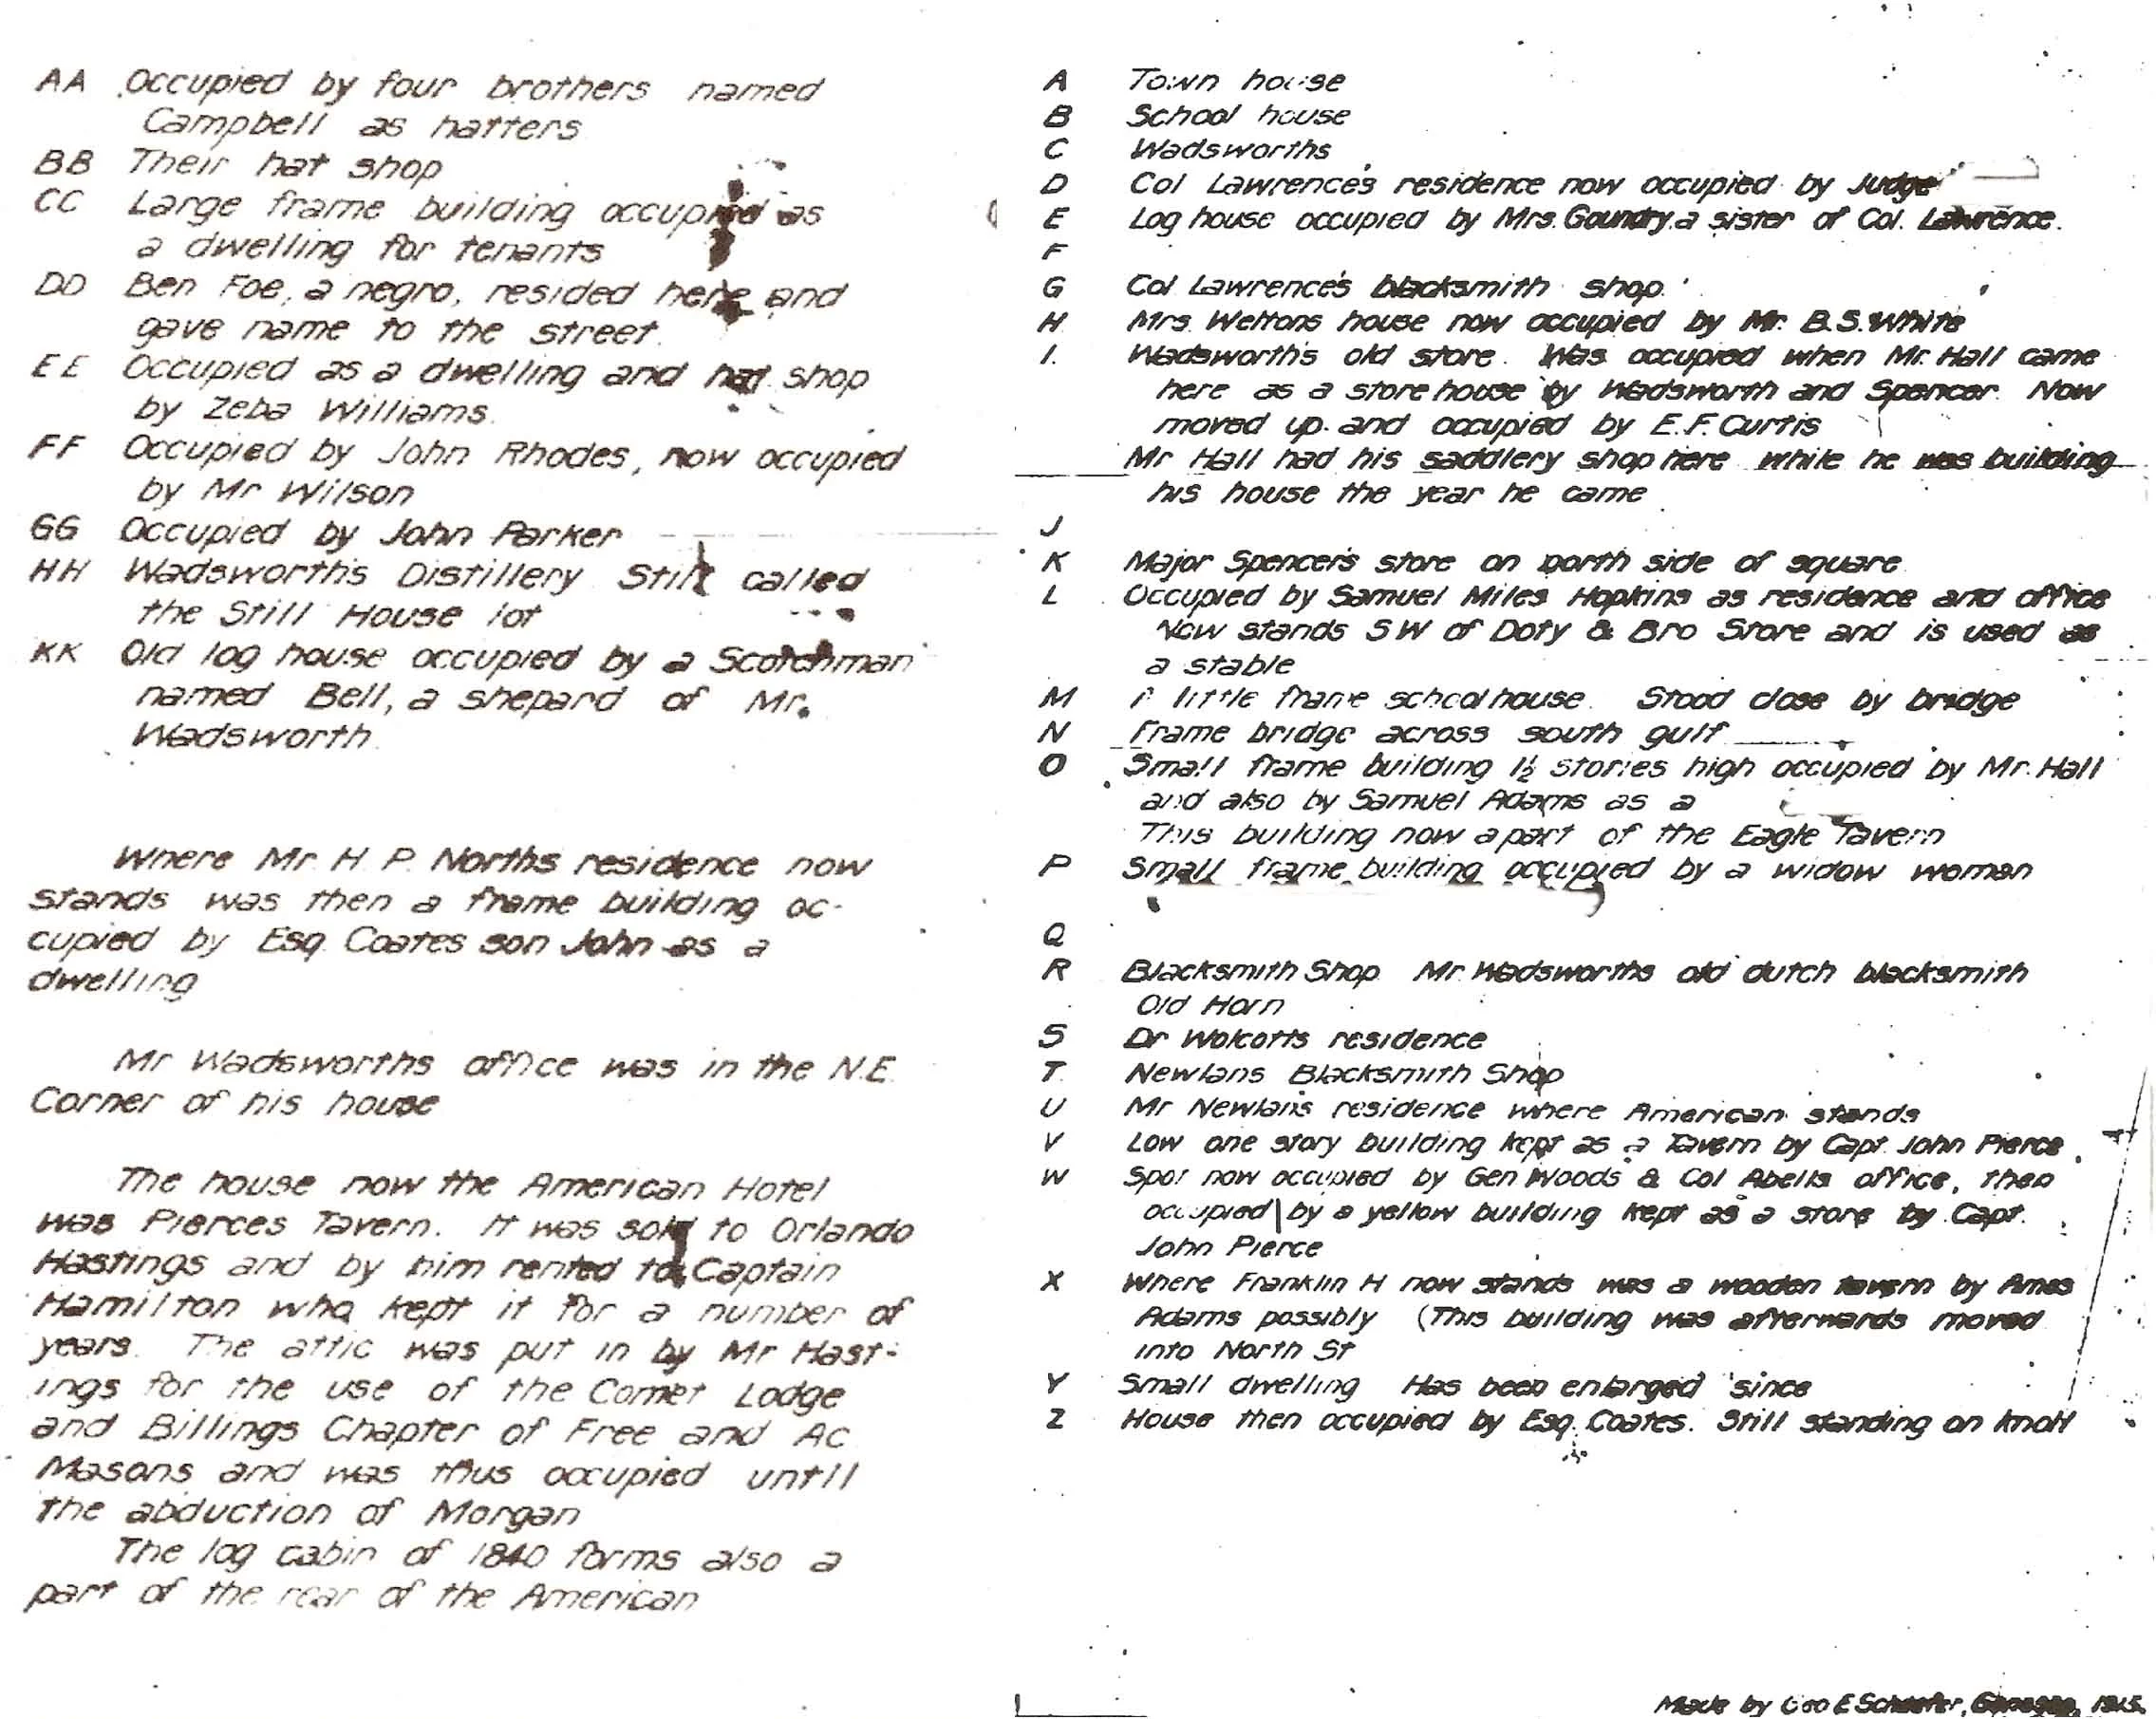 AA Occupied by four brothers named
Campbell as hatters
BB Their hat shop
CC Large frame building occupied as
a dwelling for tenants
DD Ben Foe, a negro, resided here and
gave name to the street.
EE Occupied as a dwelling and hat shop
by Zeba Williams.
FF Occupied by John Rhodes, now occupied
by Mr Wilson
GG Occupied by John Parker
HH Wadsworth's Distillery Still called
the Still House lot
KK Old log house occupied by a Scotchman
named Bell, a shepard of Mr.
Wadsworth.
Where Mr. H. P. Norths residence now
stands was then a frame building oc-
cupied by Esq. Coates son John as a
dwelling
Mr Wadsworths office was in the N.E.
Corner of his house
The house now the American Hotel
was Pierces Tavern. It was sold to Orlando
Hastings and by him rented to Captain
Hamilton who kept it for a number of
years. The attic was put in by Mr Hast-
ings for the use of the Comet Lodge
and Billings Chapter of Free and Ac
Masons and was thus occupied until
the abduction of Morgan
The log cabin of 1840 forms also a
part of the rear of the American
A Town house
B School house
C Wadsworths
D Col Lawrence's residence now occupied by Judge
E Log house occupied by Mrs. Goundry a sister of Col. Lawrence.
F
G Col Lawrence's blacksmith shop.
H. Mrs. Weltons house now occupied by Mr. B.S. White
I. Wadsworth's old store. Was occupied when Mr. Hall came
here as a store house by Wadsworth and Spencer. Now
moved up and occupied by E.F. Curtis
Mr Hall had his saddlery shop here while he was building
his house the year he came
J
K Major Spencer's store on north side of square
L Occupied by Samuel Miles Hopkins as residence and office
Now stands SW of Doty & Bro Store and is used as
a stable
M A little frame schoolhouse. Stood close by bridge
N Frame bridge across south gulf
O Small frame building 1½ stories high occupied by Mr. Hall
and also by Samuel Adams as a
This building now a part of the Eagle Tavern
P Small frame building occupied by a widow woman
Q
R Blacksmith Shop Mr. Wadsworths old dutch blacksmith
Old Horn
S Dr Wolcotts residence
T. Newlans Blacksmith Shop
U Mr Newlan's residence where American stands
V Low one story building kept as a Tavern by Capt. John Pierce
W Spot now occupied by Gen Woods & Col Abells office, then
occupied by a yellow building kept as a store by Capt.
John Pierce
X Where Franklin H now stands was a wooden tavern by Amos
Adams possibly (This building was afterwards moved
into North St
Y Small dwelling Has been enlarged since
Z House then occupied by Esq. Coates. Still standing on knoll
Made by Geo E Schaefer, Geneseo, 1915.